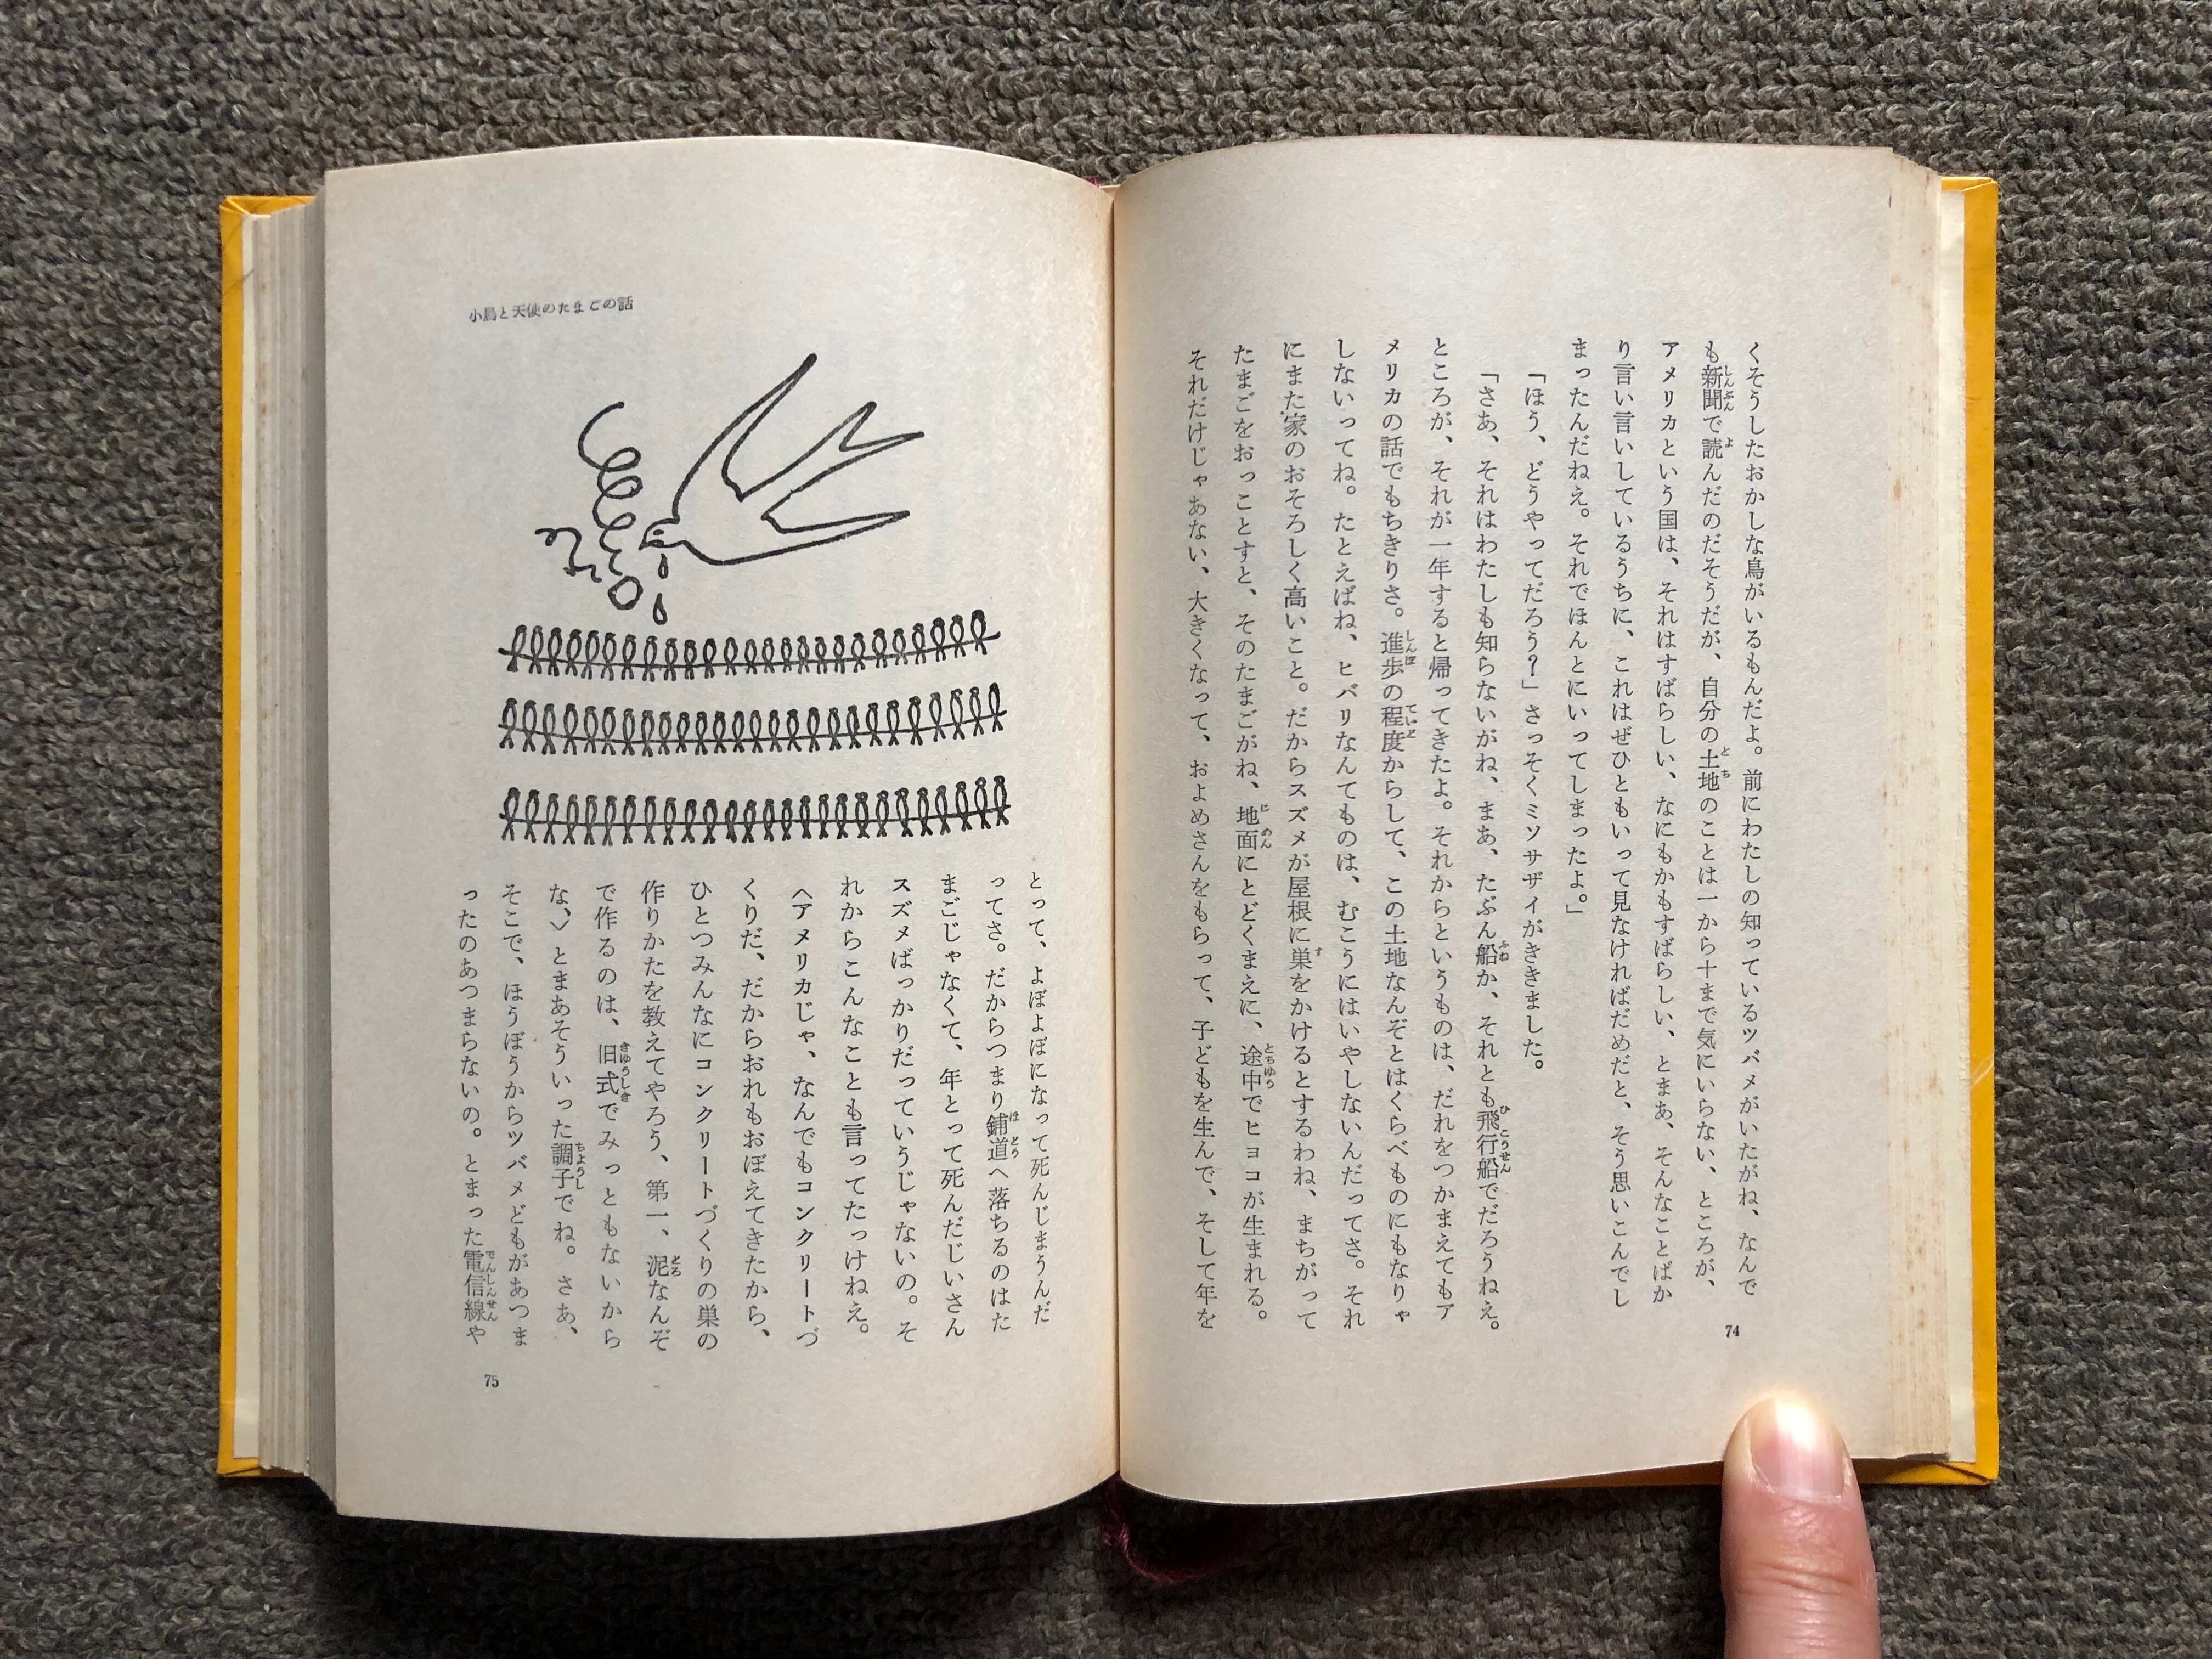 くそうしたおかしな鳥がいるもんだよ。前にわたしの知っているツバメがいたがね、なんで
も新聞で読んだのだそうだが、自分の土地のことは一から十まで気にいらない、ところが、
アメリカという国は、それはすばらしい、なにもかもすばらしい、とまあ、そんなことばか
り言い言いしているうちに、これはぜひともいって見なければだめだと、そう思いこんでし
まったんだねえ。それでほんとにいってしまったよ。」
「ほう、どうやってだろう？」さっそくミソサザイがききました。
「さあ、それはわたしも知らないがね、まあ、たぶん船か、それとも飛行船でだろうねえ。
ところが、それが一年すると帰ってきたよ。それからというものは、だれをつかまえてもア
メリカの話でもちきりさ。進歩の程度からして、この土地なんぞとはくらべものにもなりゃ
しないってね。たとえばね、ヒバリなんてものは、むこうにはいやしないんだってさ。それ
にまた家のおそろしく高いこと。だからスズメが屋根に巣をかけるとするわね、まちがって
たまごをおっことすと、そのたまごがね、地面にとどくまえに、途中でヒヨコが生まれる。
それだけじゃあない、大きくなって、およめさんをもらって、子どもを生んで、そして年を
74
小鳥と天使のたまごの話
とって、よぼよぼになって死んじまうんだ
ってさ。だからつまり鋪道へ落ちるのはた
まごじゃなくて、年とって死んだじいさん
スズメばっかりだっていうじゃないの。そ
れからこんなことも言ってたっけねえ。
〈アメリカじゃ、なんでもコンクリートづ
くりだ、だからおれもおぼえてきたから、
ひとつみんなにコンクリートづくりの巣の
作りかたを教えてやろう、第一、泥なんぞ
で作るのは、旧式でみっともないから
な、〉とまあそういった調子でね。さあ、
そこで、ほうぼうからツバメどもがあつま
ったのあつまらないの。とまった電信線や
75